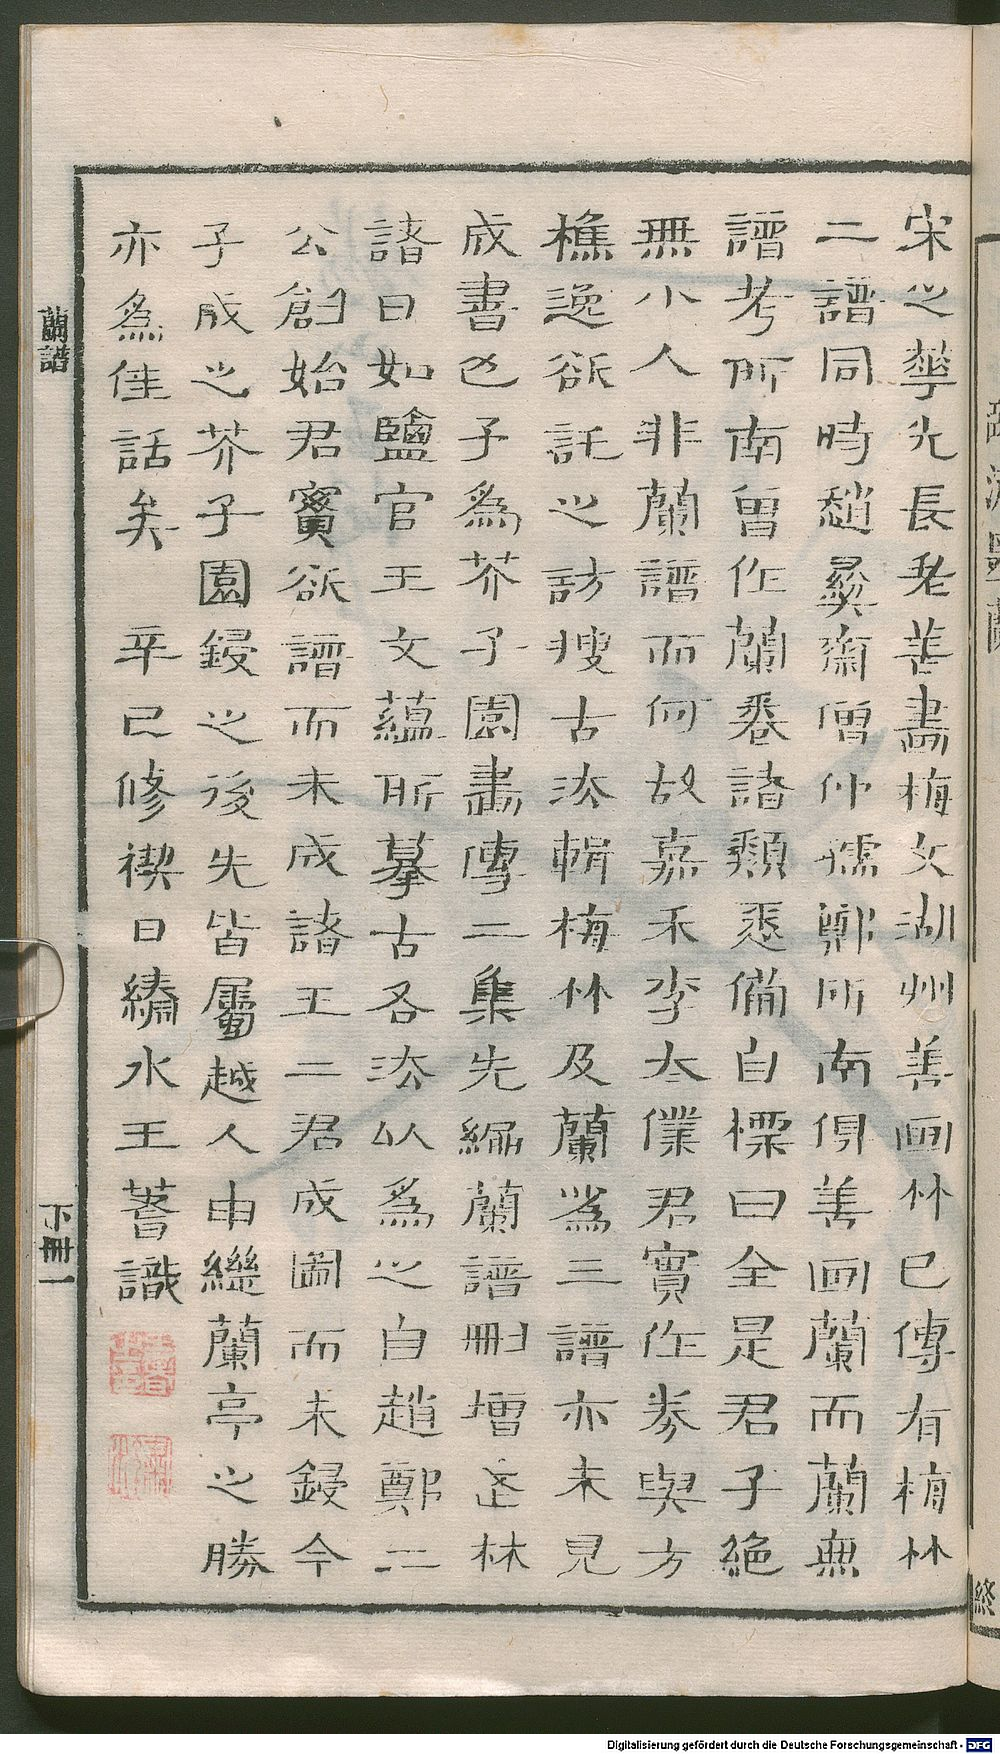 宋之華光長老善畵梅文湖州善画竹已傳有梅竹
二譜同時趙彝齋僧仲孺鄭所南俱善画蘭而蘭無
譜考所南曾作蘭卷諸類悉備自標曰全是君子絶
無小人非蘭譜而何故嘉禾李太僕君實作劵與方
樵逸欲託之訪搜古法輯梅竹及蘭為三譜亦未見
成書也予為芥子園畵傳二集先編蘭譜刪增武林
諸曰如鹽官王文蘊所摹古各法以為之自趙鄭二
公創始君實欲譜而未成諸王二君成圖而未鋟今
予成之芥子園鋟之後先皆屬越人由繼蘭亭之勝
亦為佳話矣 辛巳修禊日繡水王蓍識
蘭譜
下
終